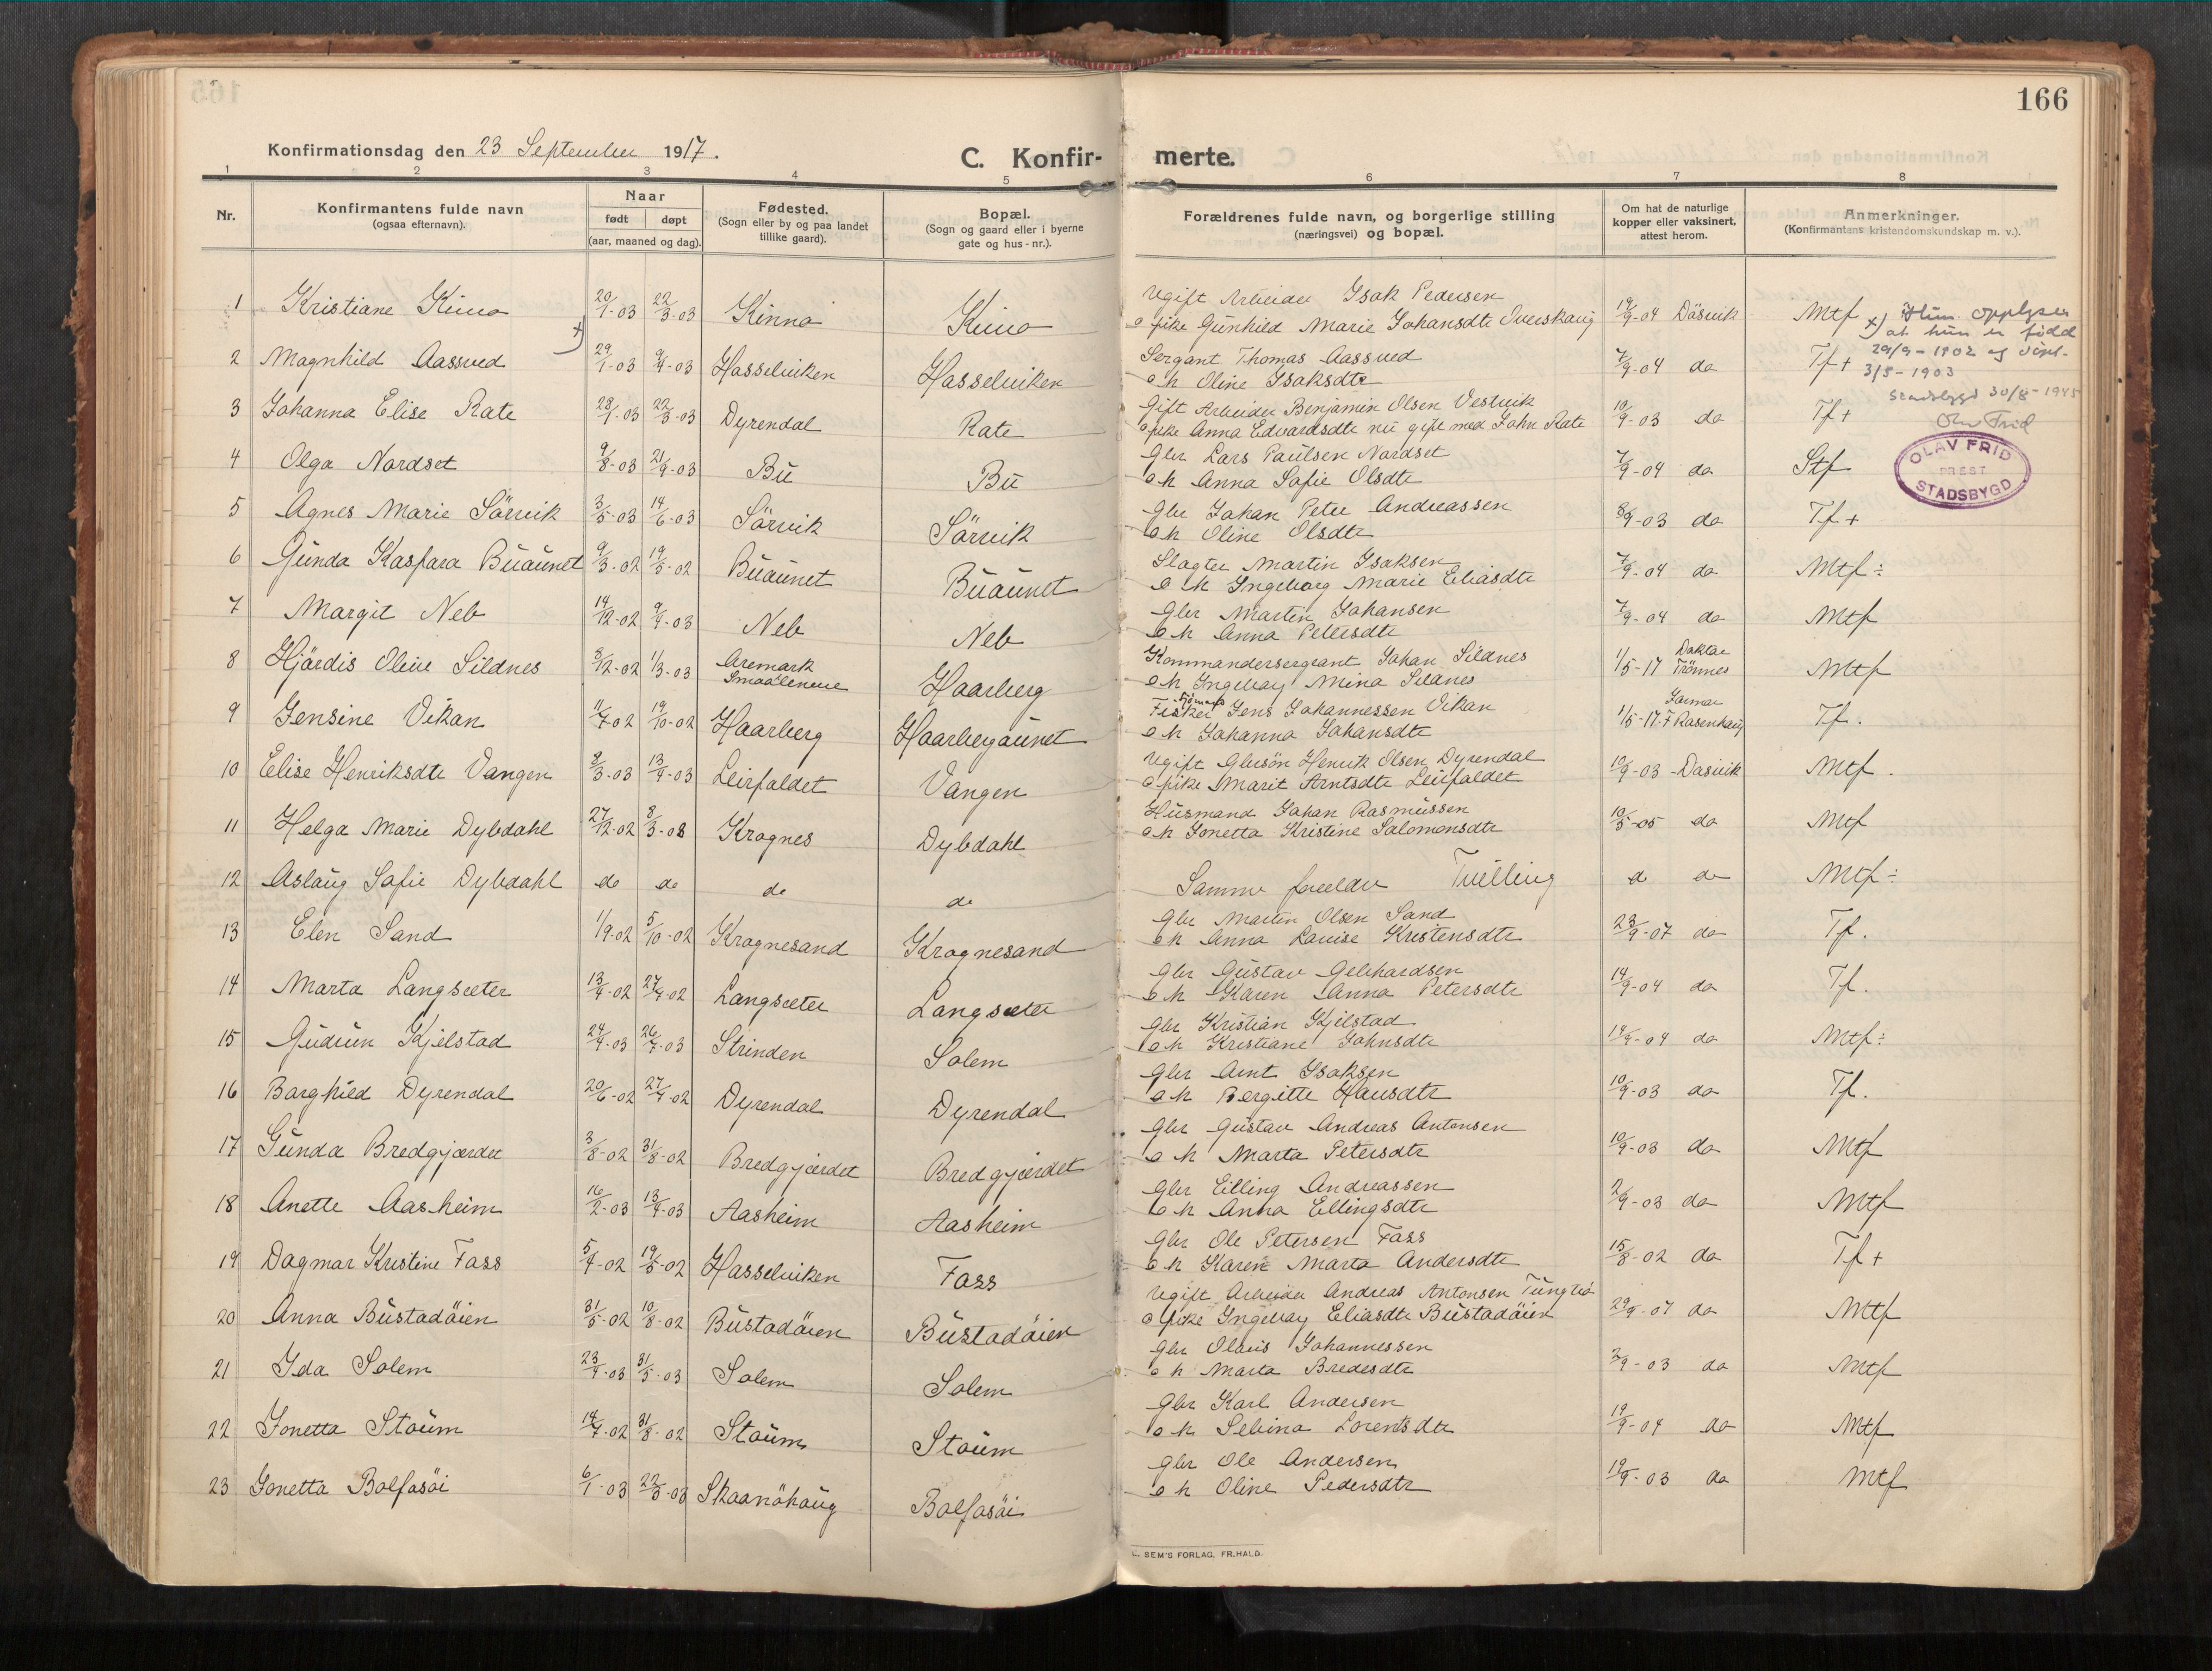 166
Konfirmationsdag den 23 September 1917.
C. Konfirmerte.
1 2 3 4 5 6 7 8
Nr.
Konfirmantens fulde navn
(ogsaa efternavn).
Naar
født døpt
(aar, maaned og dag).
Fødested.
(Sogn eller by og paa landet
tillike gaard).
Bopæl.
(Sogn og gaard eller i byerne
gate og hus-nr.).
Forældrenes fulde navn, og borgerlige stilling
(næringsvei) og bopæl.
Om hat de naturlige
kopper eller vaksinert,
attest herom.
Anmerkninger.
(Konfirmantens kristendomskundskap m. v.).
1 Kristiane Kinno 20/1-03 22/3-03 Kinno Kinno
Ugift Arbeider Isak Pedersen
o pike Gunhild Marie Johansdtr Overskaug 19/9-04 Dåsvik Mtf
x) Hun opplyser
at hun er född
29/9-1902 og döpt
3/5-1903
Stadsbygd 30/8-1945
Olav Frid
OLAV FRID
PREST
STADSBYGD
2 Magnhild Aassved +) 29/1-03 9/4-03 Hasselviken Hasselviken
Sergant Thomas Aassved
o h Oline Isaksdtr 7/9-04 do Tf+
3 Johanna Elise Rate 28/1-03 22/3-03 Dyrendal Rate
Gift Arbeider Benjamin Olsen Vestvik
o pike Anna Edvardsdtr nu gift med John Rate 10/9-03 do Tf+
4 Olga Nordset 9/8-03 21/9-03 Bu Bu
Gbr Lars Paulsen Nordset
o h Anna Sofie Olsdtr 7/9-04 do Stf
5 Agnes Marie Sörvik 3/5-03 14/6-03 Sörvik Sörvik
Gbr Johan Peter Andreassen
o h Oline Olsdtr 8/9-03 do Tf+
6 Gunda Kaspara Buaunet 9/3-02 19/5-02 Buaunet Buaunet
Slagter Martin Isaksen
o h Ingeborg Marie Eliasdtr 7/9-04 do Mtf÷
7 Margit Neb 14/12-02 9/4-03 Neb Neb
Gbr Martin Johansen
o h Anna Petersdtr 7/9-04 do Mtf
8 Hjördis Oline Sildnes 8/12-02 1/3-03 Aremark Smaalenene Haarberg
Kommandersergeant Johan Sildnes
o h Ingeborg Mina Sildnes 1/5-17 Doktor Trönnes Mtf
9 Jensine Vikan 11/7 02 19/10-02 Haarberg Haarbergaunet
Fisker Jens Johannessen Vikan
o h Johanna Johansdtr 1/5-17. Jormor F Rasenhaug Tf.
10 Elise Henriksdtr Vangen 8/3-03 13/4-03 Leirfaldet Vangen
Ugift Gbrsön Henrik Olsen Dyrendal
o pike Marit Arntsdtr Leirfaldet 10/9-03 Dasvik Mtf.
11 Helga Marie Dybdahl 27/12-02 8/3-03 Krognes Dybdahl
Husmand Johan Rasmussen
o h Jonetta Kristine Salomonsdtr 10/5-05 do Mtf
12 Aslaug Sofie Dybdahl do do do do
Samme foreldre Tvilling d do Mtf÷
13 Elen Sand 1/9-02 5/10-02 Krognesand Krognesand
Gbr Martin Olsen Sand
o h Anna Lovise Kristensdtr 23/9-07 do Tf.
14 Marta Langsæter 13/4-02 27/4-02 Langsæter Langsæter
Gbr Gustav Gebhardsen
o h Karen Anna Petersdtr 14/9-04 do Tf.
15 Gudrun Kjelstad 24/4-03 26/7-03 Strinden Solem
Gbr Kristian Kjelstad
o h Kristiane Johnsdtr 14/9-04 do Mtf÷
16 Borghild Dyrendal 20/6-02 27/7-02 Dyrendal Dyrendal
Gbr Arnt Isaksen
o h Bergitte Hansdtr 10/9-03 do Tf.
17 Gunda Bredgjærdet 3/8-02 31/8-02 Bredgjærdet Bredgjærdet
Gbr Gustav Andreas Antonsen
o h Marta Petersdtr 10/9-03 do Mtf
18 Anette Aasheim 16/2-03 13/4-03 Aasheim Aasheim
Gbr Elling Andreassen
o h Anna Ellingsdtr 2/9-03 do Mtf
19 Dagmar Kristine Fass 5/4-02 19/5-02 Hasselviken Fass
Gbr Ole Petersen Fass
o h Karen Marta Andersdtr 15/8-02 do Tf+
20 Anna Bustadöien 31/5-02 10/8-02 Bustadöien Bustadöien
Ugift Arbeider Andreas Antonsen Tungtrö
o pike Ingeborg Eliasdtr Bustadöien 29/9-07 do Mtf
21 Ida Solem 23/4-03 31/5-03 Solem Solem
Gbr Olaus Johannessen
o h Marta Bredesdtr 2/9-03 do Mtf
22 Jonetta Staum 14/7-02 31/8-02 Staum Staum
Gbr Karl Andersen
o h Selina Lorentsdtr 19/9-04 do Mtf
23 Jonetta Bolfosöi 6/1-03 22/3-03 Skaanöhaug Bolfosöi
Gbr Ole Andersen
o h Oline Pedersdtr 19/9-03 do Mtf
E. SEM'S FORLAG, FR.HALD.